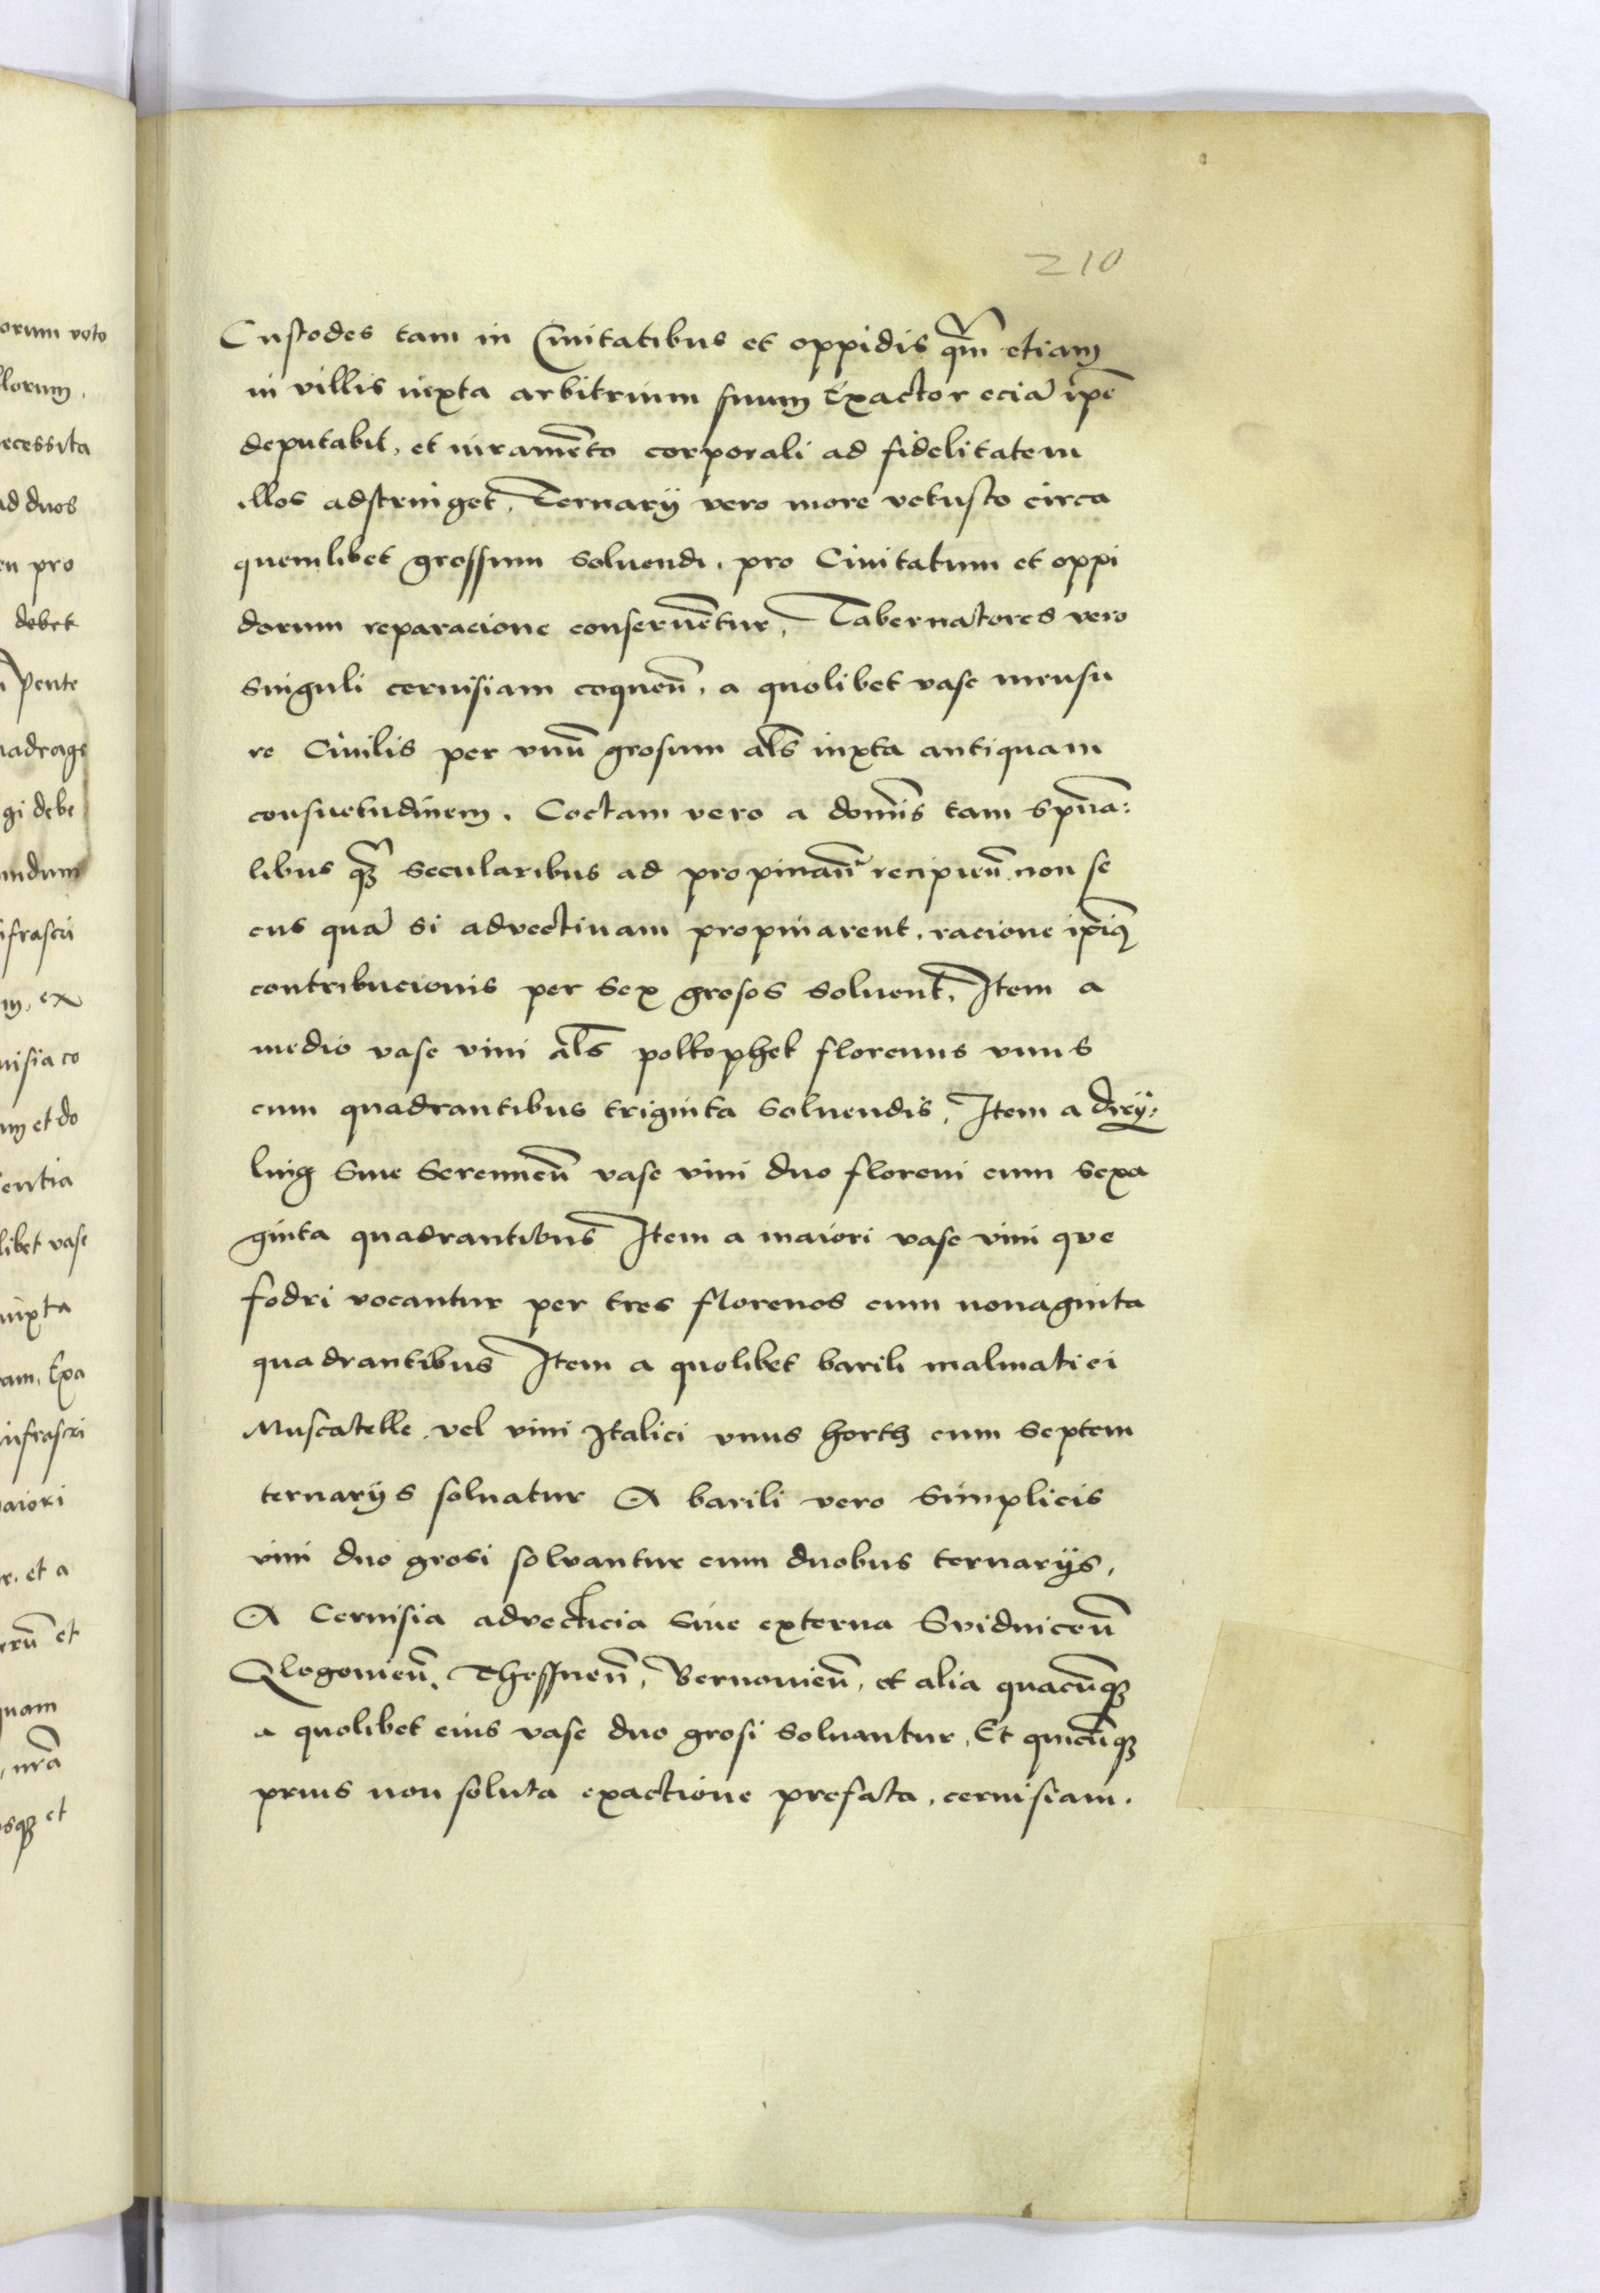 210
Custodes tam in Ciuitatibus et oppidis q̃m etiam
in villis iuxta arbitrium suum Exactor eciã ip̃e
deputabit, et iuramẽto corporali ad fidelitatem
illos adstringet, Ternarij vero more vetusto circa
quemlibet grossum soluendi, pro Ciuitatum et oppi
dorum reparacione conseruẽtur, Tabernatores vero
singuli ceruisiam coqueñ, a quolibet vase mensu
re Ciuilis per vnũ grosum al̃s iuxta antiquam
consuetudinem. Coctam vero a domĩs tam sp̃ua:
libus q̃ꝫ secularibus ad propinañ recipieñ non se
cus quã si advectiuam propinarent, racione ip̃iꝰ
contribucionis per sex grosos soluent, Item a
medio vase vini al̃s poltophet florenus vnus
cum quadrantibus triginta soluendis, Item a drey:
ling siue Serenneñ vase vini duo floreni cum sexa
ginta quadrantibus Item a maiori vase vini que
fodri vocantur per tres florenos cum nonaginta
quadrantibus Item a quolibet barili malmatici
Muscatelle vel vini Italici vnus horth cum septem
ternarijs soluatur A barili vero simplicis
vini duo grosi solvantur cum duobus ternarijs,
A Ceruisia advecticia siue externa Svidniceñ
Glogouieñ, Thessneñ, Bernouieñ, et alia quacũqꝫ
a quolibet eius vase duo grosi soluantur, Et quicũqꝫ
prius non soluta exactione prefata, ceruisiam.
orum voto
llorum,
ecessita
ad duos
en pro
debet
pente
uadrage
gi debe
undum
ifrascri
m, ex
uisia co
um et do
entia
libet vase
iuxta
am, Exa
infrascri
aiori
r. et a
et
quam
nrã
sqꝫ et